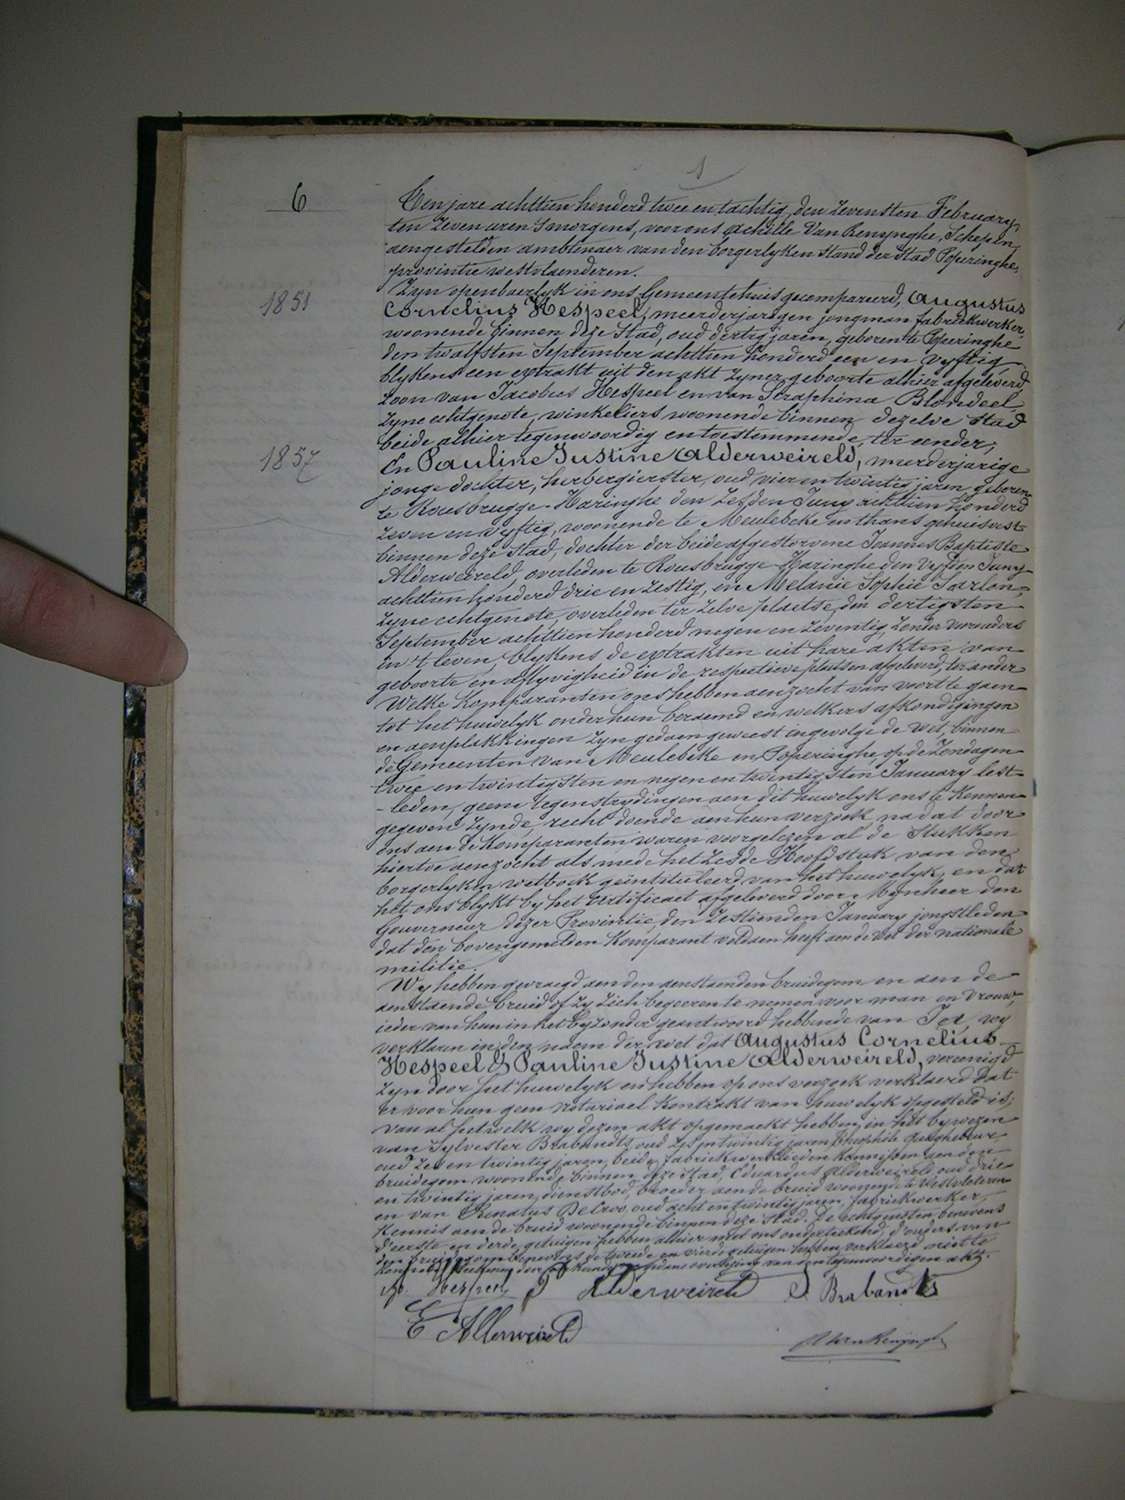 1
6
Ten jare achttien honderd twee en tachtig, den zevensten February,
ten zeven uren smorgens, voor ons Achille Van Renynghe, Schepen,
aengestelden ambtenaer van den borgerlyken Stand der Stad Poperinghe,
provintie westvlaenderen.
Zyn openbaerlyk in ons Gemeentehuis gecompareerd, Augustus
1851
Cornelius Hespeel, meerderjarigen jongman fabriekwerker,
woonende binnen deze Stad, oud dertig jaren, geboren te Poperinghe
den twalfsten September achttien honderd een en vyftig,
blykens een extrakt uit den akt zyner geboorte alhier afgeleverd,
zoon van Jacobus Hespeel en van Seraphina Blondeel,
zyne echtgenote, winkeliers woonende binnen dezelve Stad
beide alhier tegenwoordig en toestemmende, ter eender;
1857
En Pauline Justine Alderweireld, meerderjarige
jonge dochter, herbergierster, oud vier en twintig jaren, geboren
te Rousbrugge-Haringhe den zesden Juny achttien honderd
zeven en vyftig, woonende te Meulebeke en thans gehuisvest
binnen deze Stad, dochter der beide afgestorvene Joannes Baptiste
Alderweireld, overleden te Rousbrugge-Haringhe den vyfden Juny
achttien honderd drie en zestig, en Melanie Sophie
zyne echtgenote, overleden ter zelve plaetse, den dertigsten
September achttien honderd negen en zeventig, zonder voorouders
in 't leven, blykens de extrakten uit hare akten van
geboorte en aflyvigheid in de respectieve plaetsen afgeleverd, ter ander
Welke Komparanten ons hebben aenzocht van voort te gaen
tot het huwelyk onder hun beraemd en welkers afkondigingen
en aenplakkingen zyn gedaen geweest ingevolge de wet, binnen
de Gemeenten van Meulebeke en Poperinghe, op de Zondagen
twee en twintigsten en negen en twintigsten January lest-
-leden, geene tegenstrydingen aen dit huwelyk ons te kennen
gegeven zynde, recht doende aen hun verzoek, na dat door
ons aen de Komparanten waren voorgelezen al de Stukken
hiertoe aenzocht als mede het zesde Hoofdstuk van den
borgerlyken wetboek geïntituleerd van het huwelyk, en dat
het ons blykt by het certificaet afgeleverd door Mynheer den
Gouverneur dezer Provintie, den zestienden January jongstleden
dat den bovengemelden Komparant voldaen heeft aen de wet der nationale
militie.
Wy hebben gevraegd aen den aenstaenden bruidegom en aen de
aenstaende bruid of zy zich begeeren te nemen voor man en vrouw
ieder van hun in het byzonder geantwoord hebbende van Ja, wy
verklaren in den naem der wet dat Augustus Cornelius
Hespeel & Pauline Justine Alderweireld, vereenigd
zyn door het huwelyk en hebben op ons verzoek verklaerd dat
er voor hun geen notariael Kontrakt van huwelyk opgesteld is;
van al hetwelk wy dezen akt opgemaekt hebben, in het bywezen
van Sylvester Brabandts, oud jaren, Theophile
oud zeven twintig jaren, beide fabriekwerklieden kennissen aen den
bruidegom woonende binnen deze Stad, Eduardus Alderweireld oud drie
en twintig jaren, dienstbode, broeder aen de bruid woonende te Westvleteren
en van Renatus De Croo, oud acht en twintig jaren, fabriekwerker,
kennis aen de bruid woonende binnen deze Stad. De echtgenoten, benevens
d'eerste en derde getuigen hebben alhier met ons onderteekend, d'ouders van
den bruidegom benevens de tweede en vierde getuigen hebben verklaerd niet te
konnen van den tegenwoordigen akt.
Hespeel P Alderweireld S. Brabandts
E Allerweireld
AVan Renynghe